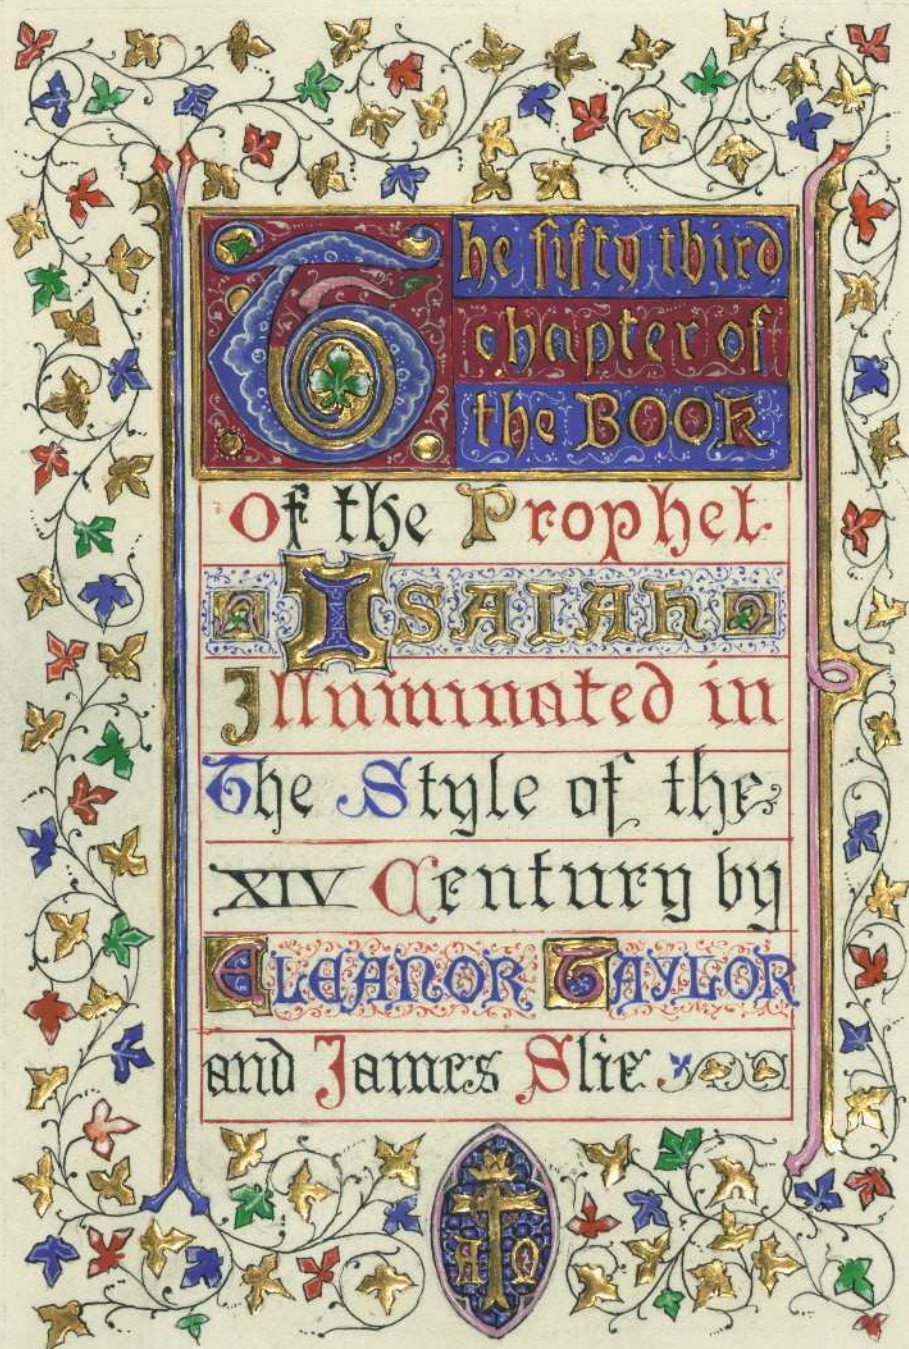 The fifty third
chapter of
the BOOK
Of the Prophet
ISAIAH
Illuminated in
The Style of the
XIV Century by
ELEANOR TAYLOR
and James Slie
A Ω